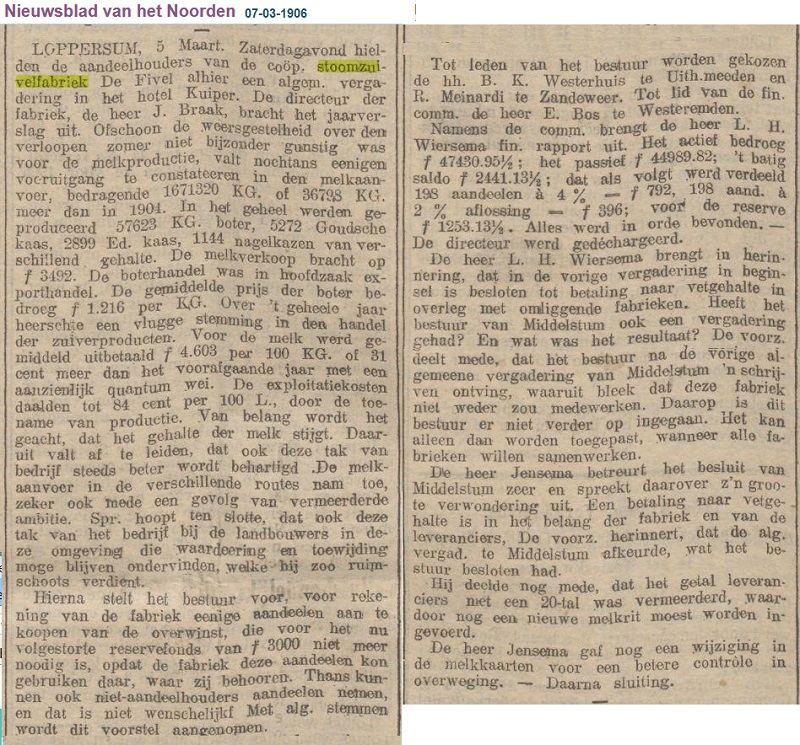 Nieuwsblad van het Noorden 07-03-1906
LOPPERSUM, 5 Maart. Zaterdagavond hiel-
den de aandeelhouders van de coöp. stoomzui-
velfabriek De Fivel alhier een algem. verga-
dering in het hotel Kuiper. De directeur der
fabriek, de heer J. Braak, bracht het jaarver-
slag uit. Ofschoon de weersgesteldheid over den
verloopen zomer niet bijzonder gunstig was
voor de melkproductie, valt nochtans eenigen
vooruitgang te constateeren in den melkaan-
voer, bedragende 1671320 KG. of 36798 KG.
meer dan in 1904. In het geheel werden ge-
produceerd 57623 KG. boter, 5272 Goudsche
kaas, 2899 Ed. kaas, 1144 nagelkazen van ver-
schillend gehalte. De melkverkoop bracht op
f 3492. De boterhandel was in hoofdzaak ex-
porthandel. De gemiddelde prijs der boter be-
droeg f 1.216 per KG. Over 't geheele jaar
heerschte een vlugge stemming in den handel
der zuiverproducten. Voor de melk werd ge-
middeld uitbetaald f 4.603 per 100 KG. of 31
cent meer dan het voorafgaande jaar met een
aanzienlijk quantum wei. De exploitatiekosten
daalden tot 84 cent per 100 L., door de toe-
name van productie. Van belang wordt het
geacht, dat het gehalte der melk stijgt. Daar-
uit valt af te leiden, dat ook deze tak van
bedrijf steeds beter wordt behartigd .De melk-
aanvoer in de verschillende routes nam toe,
zeker ook mede een gevolg van vermeerderde
ambitie. Spr. hoopt ten slotte, dat ook deze
tak van het bedrijf bij de landbouwers in de-
ze omgeving die waardeering en toewijding
moge blijven ondervinden, welke hij zoo ruim-
schoots verdient.
Hierna stelt het bestuur voor, voor reke-
ning van de fabriek eenige aandeelen aan te
koopen van de overwinst, die voor het nu
volgestorte reservefonds van f 3000 niet meer
noodig is, opdat de fabriek deze aandeelen kon
gebruiken daar, waar zij behooren. Thans kun-
nen ook niet-aandeelhouders aandeelen nemen,
en dat is niet wenschelijkf Met alg. stemmen
wordt dit voorstel aangenomen.
Tot leden van het bestuur worden gekozen
de hh. B. K. Westerhuis te Uith.meeden en
R. Meinardi te Zandeweer. Tot lid van de fin.
comm. de heer E. Bos te Westeremden.
Namens de comm. brengt de heer L. H.
Wiersema fin. rapport uit. Het actief bedroeg
f 47430.95½; het passief f 44989.82; 't batig
saldo f 2441.13½; dat als volgt werd verdeeld
198 aandeelen à 4 % — f 792, 198 aand. à
2 % aflossing — f 396; voor de reserve
f 1253.13½. Alles werd in orde bevonden. —
De directeur werd gedéchargeerd.
De heer L. H. Wiersema brengt in herin-
nering, dat in de vorige vergadering in begin-
sel is besloten tot betaling naar vetgehalte in
overleg met omliggende fabrieken. Heeft het
bestuur van Middelstum ook een vergadering
gehad? En wat was het resultaat? De voorz.
deelt mede, dat het bestuur na de vorige al-
gemeene vergadering van Middelstum 'n schrij-
ven ontving, waaruit bleek dat deze fabriek
niet weder zou medewerken. Daarop is dit
bestuur er niet verder op ingegaan. Het kan
alleen dan worden toegepast, wanneer alle fa-
brieken willen samenwerken.
De heer Jensema betreurt het besluit van
Middelstum zeer en spreekt daarover z'n groo-
te verwondering uit. Een betaling naar vetge-
halte is in het belang der fabriek en van de
leveranciers, De voorz. herinnert, dat de alg.
vergad. te Middelstum afkeurde, wat het be-
stuur besloten had.
Hij deelde nog mede, dat het getal leveran-
ciers met een 20-tal was vermeerderd, waar-
door nog een nieuwe melkrit moest worden in-
gevoerd.
De heer Jensema gaf nog een wijziging in
de melkkaarten voor een betere contrôle in
overweging. — Daarna sluiting.